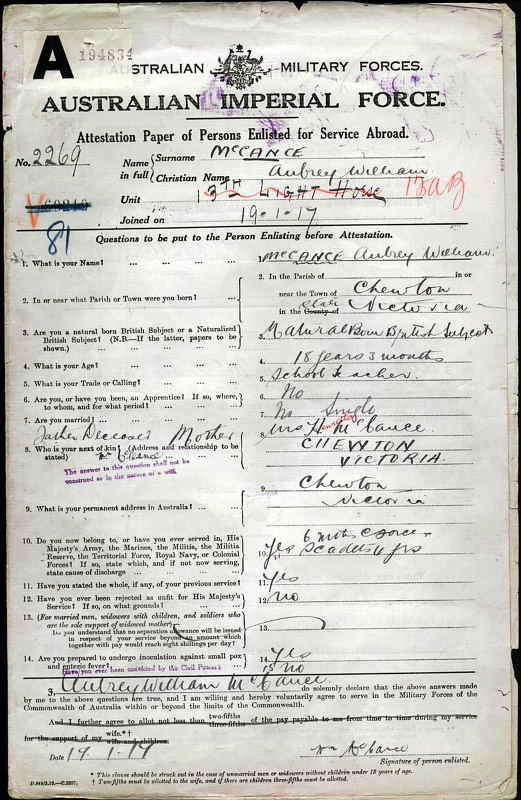 A
194834
AUSTRALIAN MILITARY FORCES.
AUSTRALIAN IMPERIAL FORCE.
Attestation Paper of Persons Enlisted for Service Abroad.
No. 2269
Name in full { Surname McCANCE
Christian Name Aubrey William
Unit 13TH LIGHT HORSE
Joined on 19.1.17
81
Questions to be put to the Person Enlisting before Attestation.
1. What is your Name? ... ... ... ... 1. McCANCE Aubrey William
2. In or near what Parish or Town were you born? ... 2. In the Parish of in or
near the Town of Chewton
in the County of State Victoria
3. Are you a natural born British Subject or a Naturalized
British Subject? (N.B.—If the latter, papers to be
shown.) ... ... ... ... 3. Natural Born British Subject
4. What is your Age? ... ... ... ... 4. 18 years 3 months
5. What is your Trade or Calling? ... ... ... 5. School Teacher
6. Are you, or have you been, an Apprentice? If so, where,
to whom, and for what period? ... ... ... 6. No
7. Are you married? ... ... ... ... 7. No Single
Father Deceased Mother
8. Who is your next of kin? (Address and relationship to be
stated) 8. Mrs H McCance
CHEWTON
VICTORIA.
The answer to this question shall not be
construed as in the nature of a will.
9. What is your permanent address in Australia? ... 9. Chewton
Victoria
10. Do you now belong to, or have you ever served in, His
Majesty's Army, the Marines, the Militia, the Militia
Reserve, the Territorial Force, Royal Navy, or Colonial
Forces? If so, state which, and if not now serving,
state cause of discharge ... ... ... 10. Yes
11. Have you stated the whole, if any, of your previous service? 11. Yes
12. Have you ever been rejected as unfit for His Majesty's
Service? If so, on what grounds? ... ... 12. No
13. (For married men, widowers with children, and soldiers who
are the sole support of widowed mother)—
Do you understand that no separation allowance will be issued
in respect of your service beyond an amount which
together with pay would reach eight shillings per day? 13.
14. Are you prepared to undergo inoculation against small pox
and enteric fever? 14. Yes
Have you ever been convicted by the Civil Power? 15 No
I, Aubrey William McCance do solemnly declare that the above answers made
by me to the above questions are true, and I am willing and hereby voluntarily agree to serve in the Military Forces of the
Commonwealth of Australia within or beyond the limits of the Commonwealth.
And I further agree to allot not less than two-fifths three-fifths of the pay payable to me from time to time during my service
for the support of my wife.*† wife and children.
Date 19.1.17
McCance
Signature of person enlisted.
* This clause should be struck out in the case of unmarried men or widowers without children under 18 years of age.
† Two-fifths must be allotted to the wife, and if there are children three-fifths must be allotted.